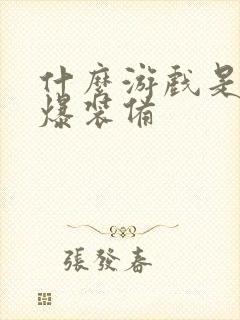 什麼游戲是
爆裝備
張發春